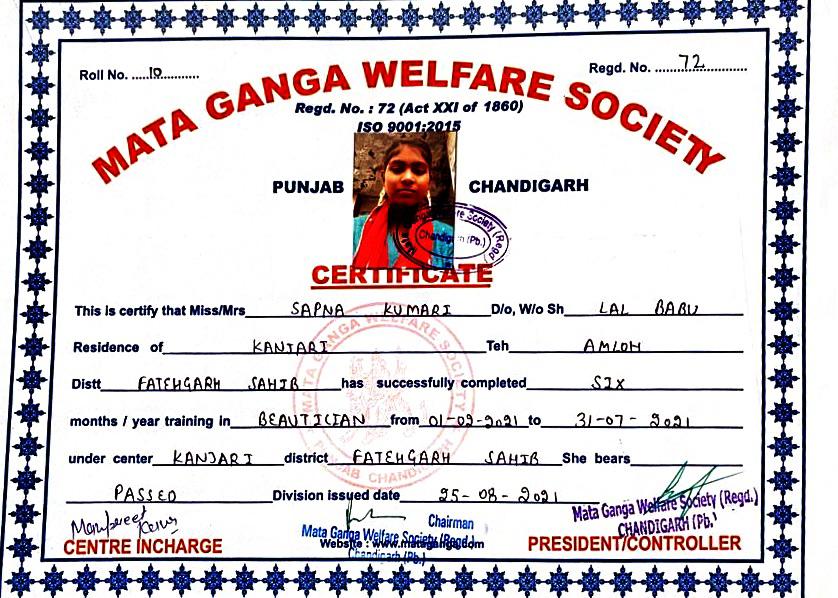 Roll No. .....10............
Regd. No. ........72..............
MATA GANGA WELFARE SOCIETY
Regd. No. : 72 (Act XXI of 1860)
ISO 9001:2015
PUNJAB CHANDIGARH
Mata Ganga Welfare Society (Regd
Chandigarh (Pb.)
CERTIFICATE
This is certify that Miss/Mrs SAPNA KUMARI D/o, W/o Sh LAL BABU
Residence of KANJARI Teh AMLOH
Distt FATEHGARH SAHIB has successfully completed SIX
months / year training in BEAUTICIAN from 01-02-2021 to 31-07-2021
under center KANJARI district FATEHGARH SAHIB She bears
PASSED Division issued date 25-08-2021
MATA GANGA WELFARE SOCIETY
PUNJAB CHANDIGARH
Manpreet Kaur
CENTRE INCHARGE
Chairman
Mata Ganga Welfare Society (Regd.)
Website : www.mataganga.com
Chandigarh (Pb.)
Mata Ganga Welfare Society (Regd.)
CHANDIGARH (Pb.)
PRESIDENT/CONTROLLER